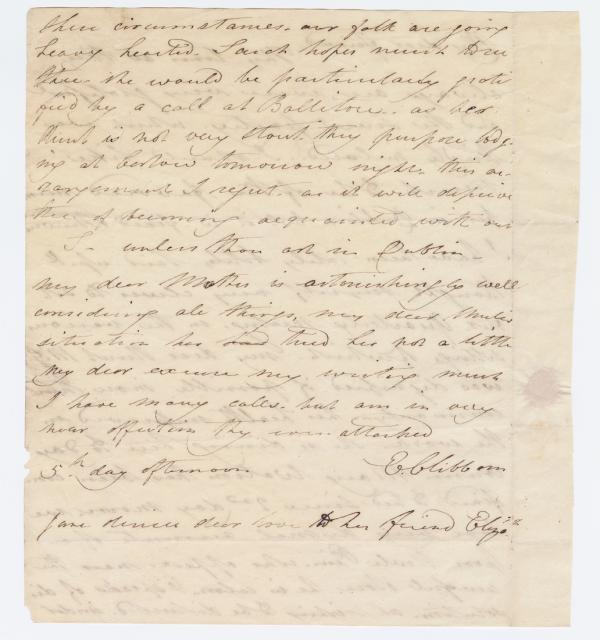 these circumstances. our folk are going
heavy hearted. Sarah hopes much to see
thee. she would be particularly grati
fied by a call at Ballitore. as her
Aunt is not very stout they purpose lodg
ing at Carlow tomorrow night. this ar
rangement I regret. as it will deprive
thee of becoming acquainted with our
S— unless thou art in Dublin—
My dear Mother is astonishingly well
considering all things, my dear
situation has tried her not a little
My dear excuse my writing much
I have many calls. but am in very
near affection thy ever attached
5th day afternoon E. Clibborn
Jane dear love to her friend Elizth